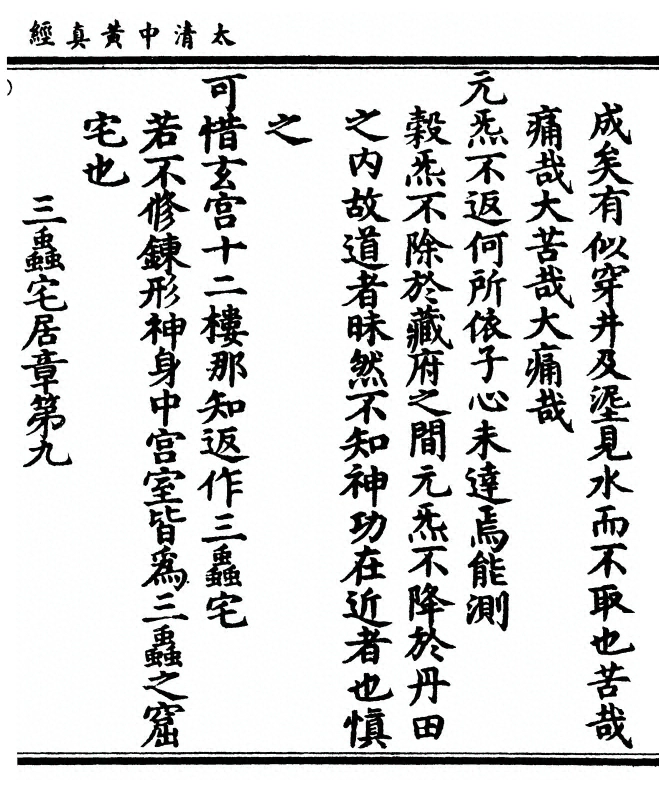 太清中黃真經
成矣有似穿井及埿見水而不取也苦哉
痛哉大苦哉大痛哉
元炁不返何所依子心未達焉能測
穀炁不除於藏府之間元炁不降於丹田
之内故道者昧然不知神功在近者也慎
之
可惜玄宫十二樓那知返作三蟲宅
若不修鍊形神身中宫室皆為三蟲之窟
宅也
三蟲宅居章第九